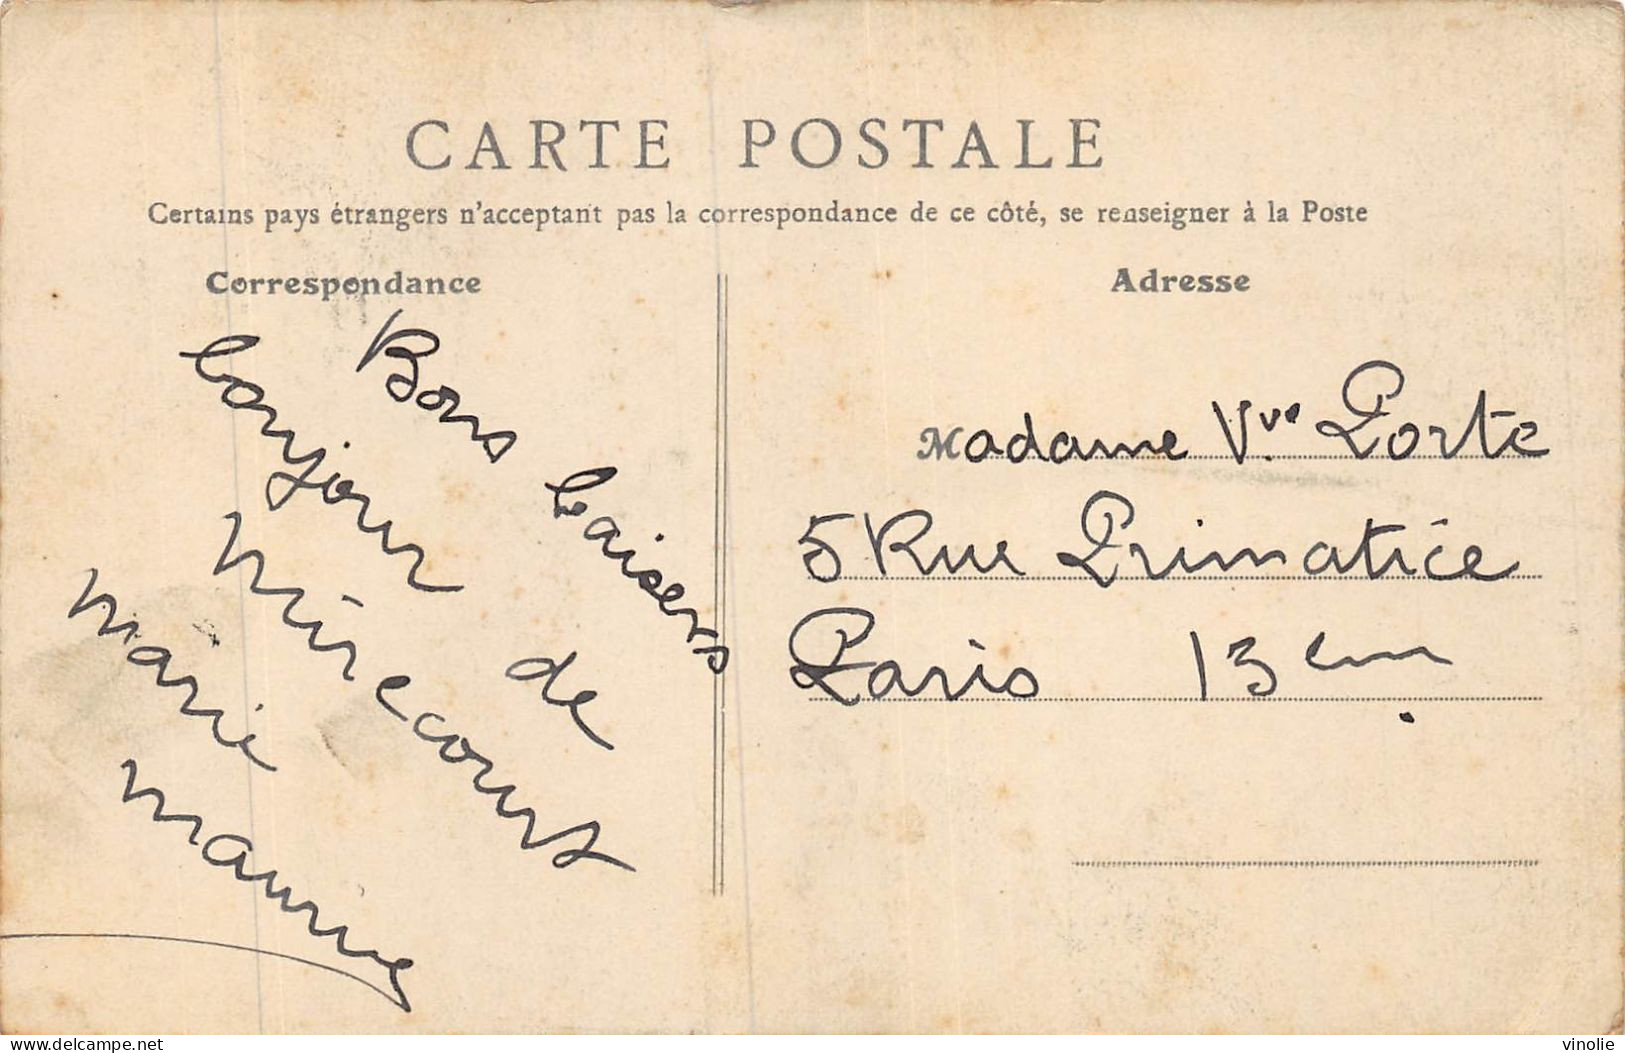 CARTE POSTALE
Certains pays étrangers n'acceptant pas la correspondance de ce côté, se renseigner à la Poste
Correspondance
Bons baisers
bonjour de
mirecourt
marie
maurice
Adresse
Madame Vve Porte
5 Rue Primatice
Paris 13em
www.delcampe.net
vinolie